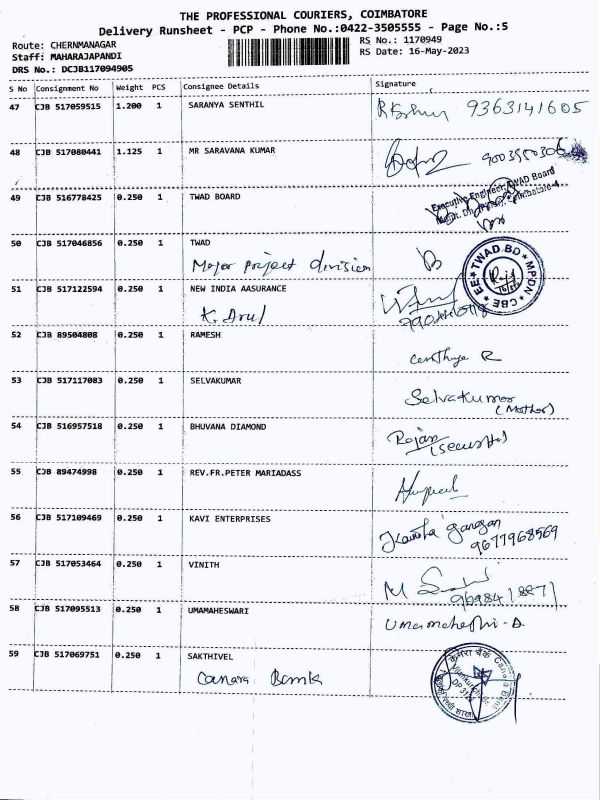 THE PROFESSIONAL COURIERS, COIMBATORE
Delivery Runsheet - PCP - Phone No.:0422-3505555 - Page No.:5
Route: CHERNMANAGAR
Staff: MAHARAJAPANDI
DRS No.: DCJB117094905
RS No.: 1170949
RS Date: 16-May-2023
S No Consignment No Weight PCS Consignee Details Signature
47 CJB 517059515 1.200 1 SARANYA SENTHIL 9363141605
48 CJB 517080441 1.125 1 MR SARAVANA KUMAR
49 CJB 516778425 0.250 1 TWAD BOARD
Executive Engineer, TWAD Board
50 CJB 517046856 0.250 1 TWAD
Major project division
EE ★ TWAD BD ★ MPDN ★ CBE ★
51 CJB 517122594 0.250 1 NEW INDIA AASURANCE
K. Arul
52 CJB 89504808 0.250 1 RAMESH
R
53 CJB 517117083 0.250 1 SELVAKUMAR
Selvakumar
(Mother)
54 CJB 516957518 1 0.250 BHUVANA DIAMOND
Rajan
55 CJB 89474998 0.250 1 REV.FR.PETER MARIADASS
56 CJB 517109469 0.250 1 KAVI ENTERPRISES
9677968569
57 CJB 517053464 0.250 1 VINITH
M
58 CJB 517095513 0.250 1 UMAMAHESWARI
59 CJB 517069751 0.250 1 SAKTHIVEL
Canara Bank
केनरा बैंक Canara Bank